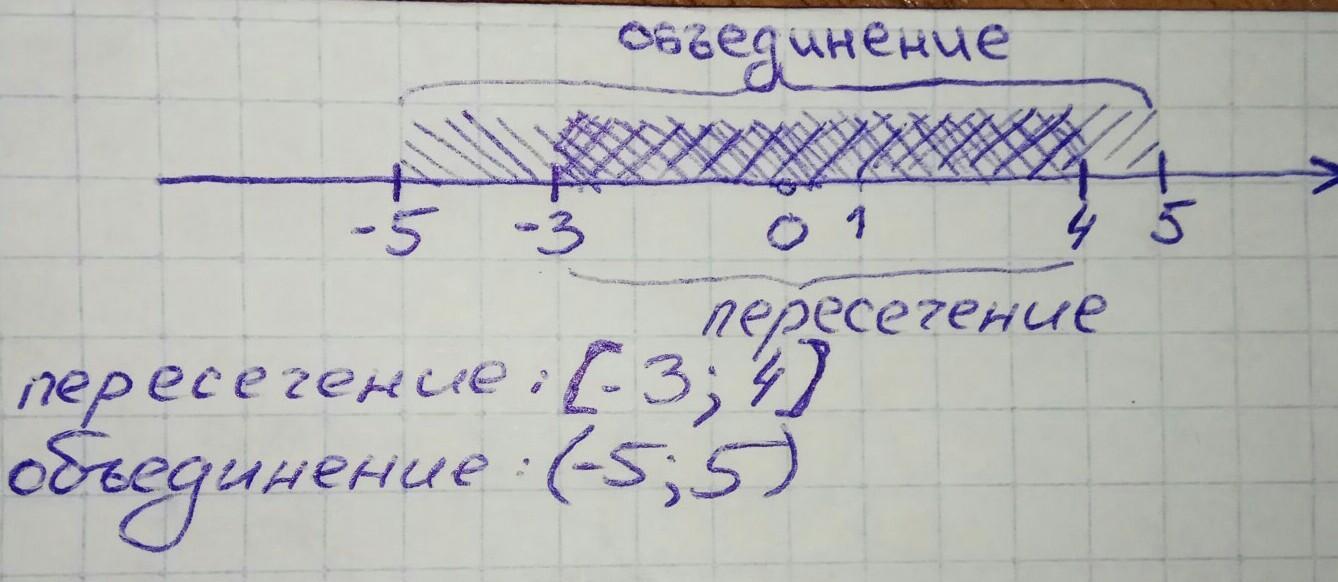 объединение
-5 -3 0 1 4 5
пересечение
пересечение: [-3; 4]
объединение: (-5; 5)